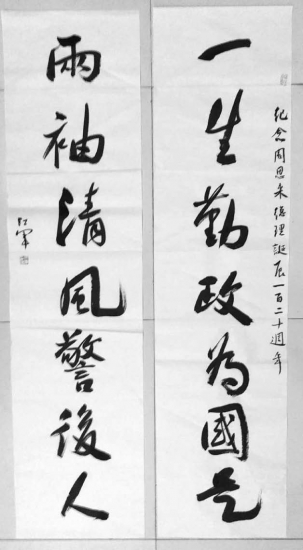 一生勤政為國是
紀念周恩来總理誕辰一百二十週年
兩袖清風警後人
紅軍